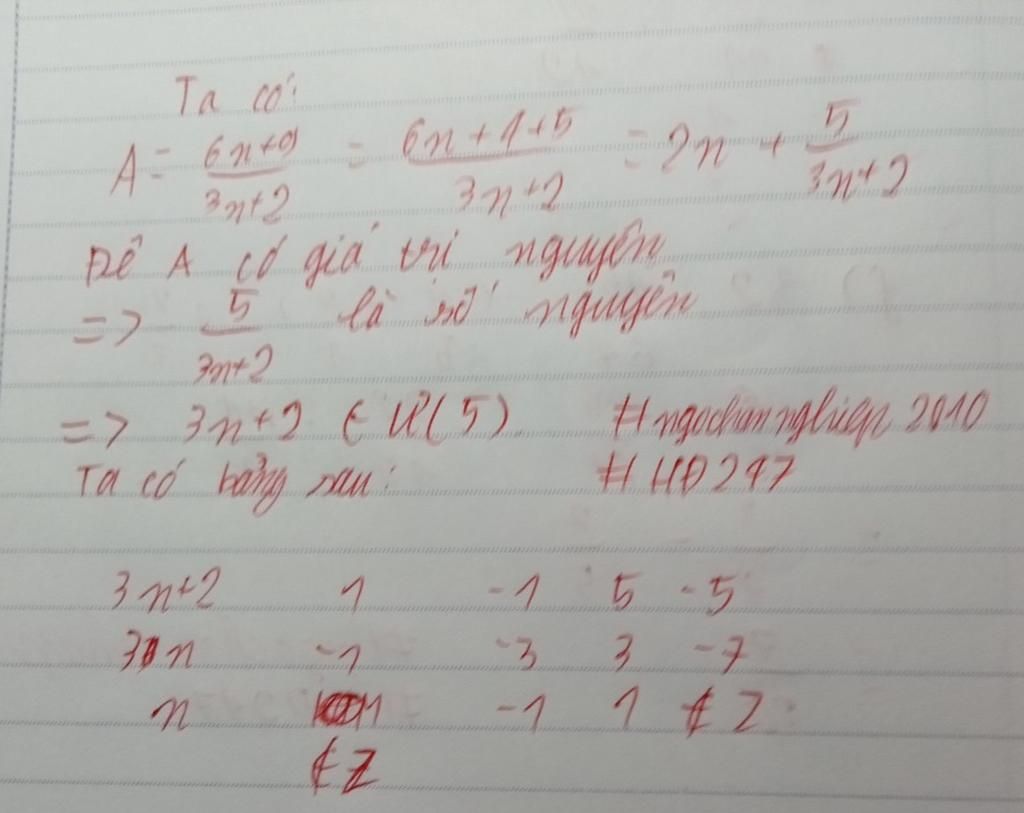 Ta có:
A = 6n+9/3n+2 = 6n+4+5/3n+2 = 2n + 5/3n+2
Để A có giá trị nguyên
=> 5/3n+2 là số nguyên
=> 3n+2 ∈ Ư(5) #ngochannghiep2010
Ta có bảng sau: #HĐ247
3n+2 1 -1 5 -5
3n -1 -3 3 -7
n -1 1 ∉ Z
∉ Z